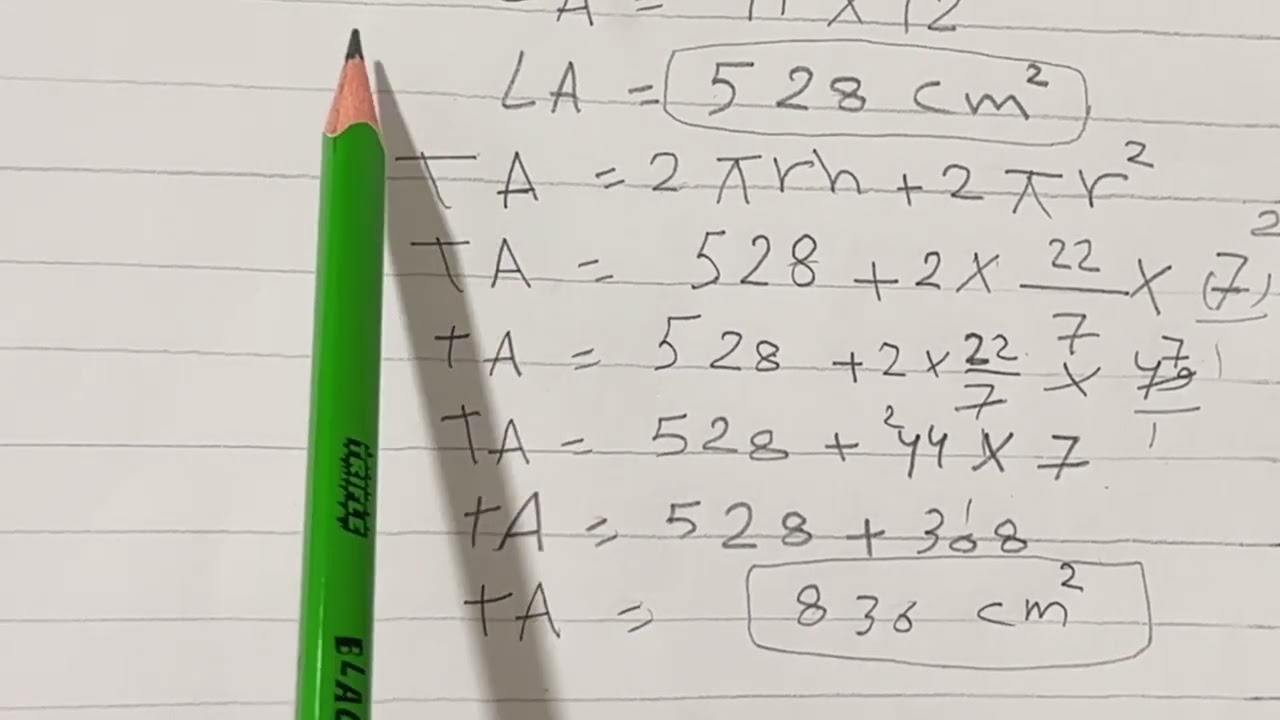 A = 44 × 12
LA = 528 cm²
TA = 2πrh + 2πr²
TA = 528 + 2 × 22/7 × (7)²
TA = 528 + 2 × 22/7 × 49 7 1 1
TA = 528 + ²44 × 7
TA = 528 + 3¹08
TA = 836 cm²
BLAC